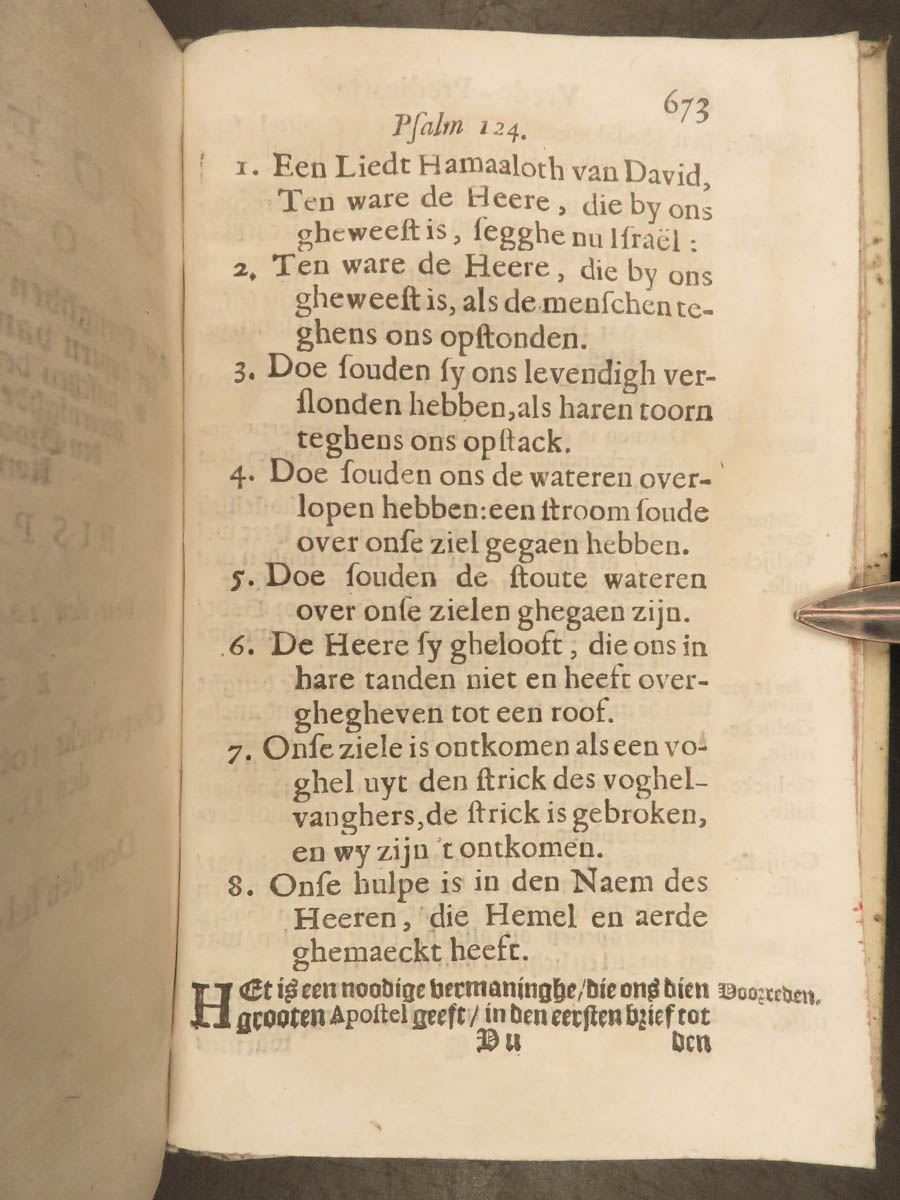 673
Pſalm 124.
1. Een Liedt Hamaaloth van David,
Ten ware de Heere, die by ons
gheweeſt is, ſegghe nu Iſraël:
2. Ten ware de Heere, die by ons
gheweeſt is, als de menſchen te-
ghens ons opſtonden.
3. Doe ſouden ſy ons levendigh ver-
ſlonden hebben, als haren toorn
teghens ons opſtack.
4. Doe ſouden ons de wateren over-
lopen hebben: een ſtroom ſoude
over onſe ziel gegaen hebben.
5. Doe ſouden de ſtoute wateren
over onſe zielen ghegaen zijn.
6. De Heere ſy ghelooft, die ons in
hare tanden niet en heeft over-
ghegheven tot een roof.
7. Onſe ziele is ontkomen als een vo-
ghel uyt den ſtrick des voghel-
vanghers, de ſtrick is gebroken,
en wy zijn 't ontkomen.
8. Onſe hulpe is in den Naem des
Heeren, die Hemel en aerde
ghemaeckt heeft.
HEt is een noodige vermaninghe/ die ons dien Voorreden.
grooten Apoſtel geeft/ in den eerſten brief tot
Vu den